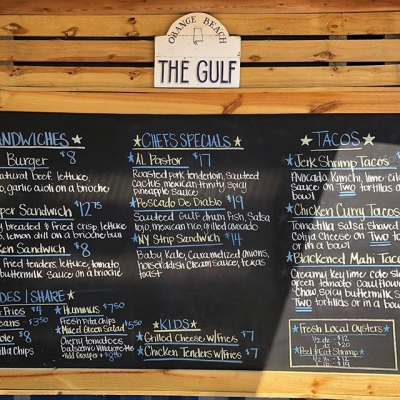 ORANGE BEACH
THE GULF
SANDWICHES
Burger $8
natural beef, lettuce,
garlic aioli on a brioche
Sandwich $12.75
breaded & fried crisp lettuce
lemon dill on a brioche bun
Sandwich $8
fried tenders, lettuce, tomato,
buttermilk sauce on a brioche
/ SHARE
Fries $4
$3.50
Chips
Hummus $7.50
Fresh Pita Chips
Mixed Green Salad $5.50
Cherry tomatoes
balsamic
CHEF'S SPECIALS
AL Pastor $17
Roasted pork tenderloin, sauteed
cactus, mexican trinity, spicy
pineapple sauce
Pescado De Diablo $19
Sauteed Gulf drum fish, Salsa
rojo, mexican rice, grilled avocado
NY Strip Sandwich $14
Baby Kale, Caramelized onions,
horseradish cream sauce, texas
toast
KIDS
Grilled Cheese w/Fries $7
Chicken Tenders w/Fries $7
TACOS
Jerk Shrimp Tacos
Avocado, Kimchi, lime
sauce on Two tortillas or
bowl
Chicken Curry Tacos
Tomatilla salsa, Shaved
Cotija Cheese on Two
in a bowl
Blackened Mahi Tacos
Creamy Key lime cole
green tomato
Chow Spicy buttermilk
Two tortillas or in a bowl
Fresh Local Oysters
1/2 dz - $12
1 dz - $20
Peel & Eat Shrimp
1/2 lb - $12